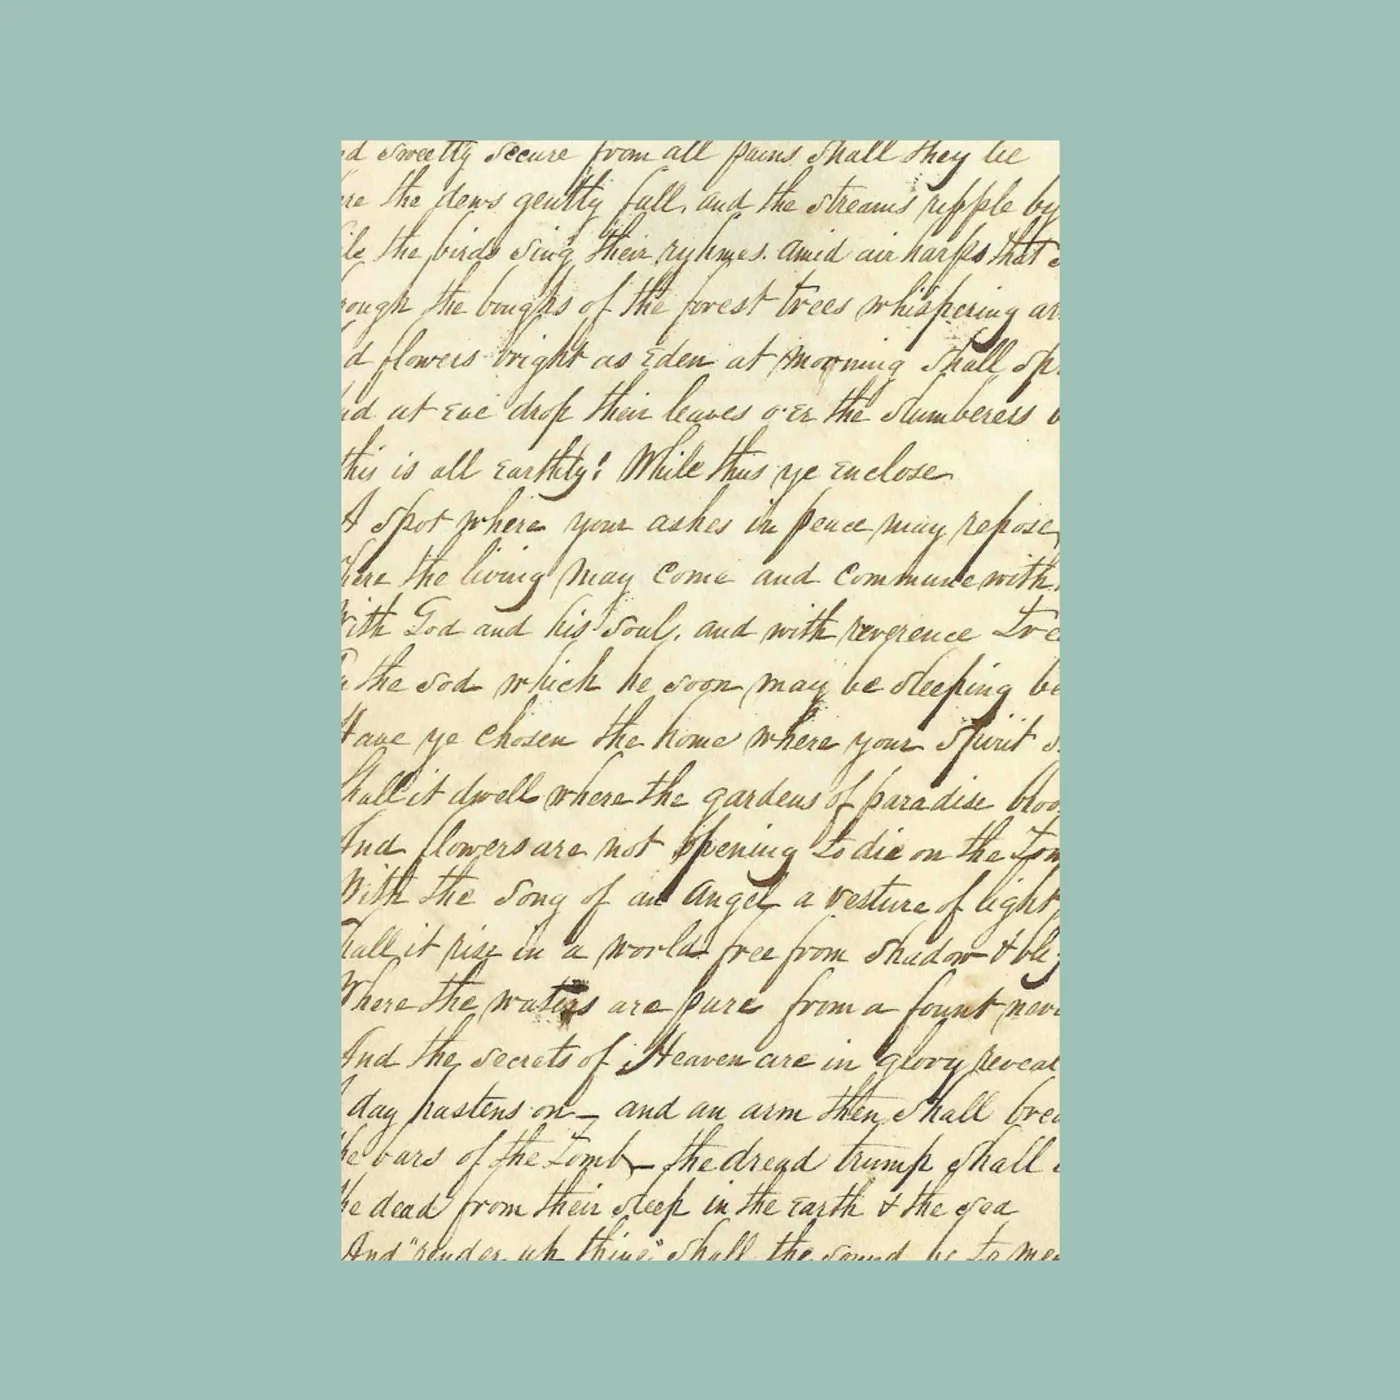 nd sweetly secure from all pains shall they lie
ere the dews gently fall, and the streams ripple by
ile the birds sing their ryhmes. amid air harps that
rough the boughs of the forest trees whispering ar
d flowers bright as Eden at morning shall sp
nd at eve drop their leaves o'er the slumberers
this is all earthly! While thus ye enclose
A spot where your ashes in peace may repose
here the living may come and commune with
With God and his soul, and with reverence tre
the sod which he soon may be sleeping be
Have ye chosen the home where your spirit s
Shall it dwell where the gardens of paradise bloo
And flowers are not opening to die on the tom
With the song of an angel a vesture of light,
Shall it rise in a world free from shadow & blig
Where the waters are pure from a fount nev
And the secrets of Heaven are in glory reveal
day hastens on— and an arm then shall brea
he bars of the tomb— the dread trump shall
he dead from their sleep in the earth & the sea
And "render up thine" shall the sound be to me